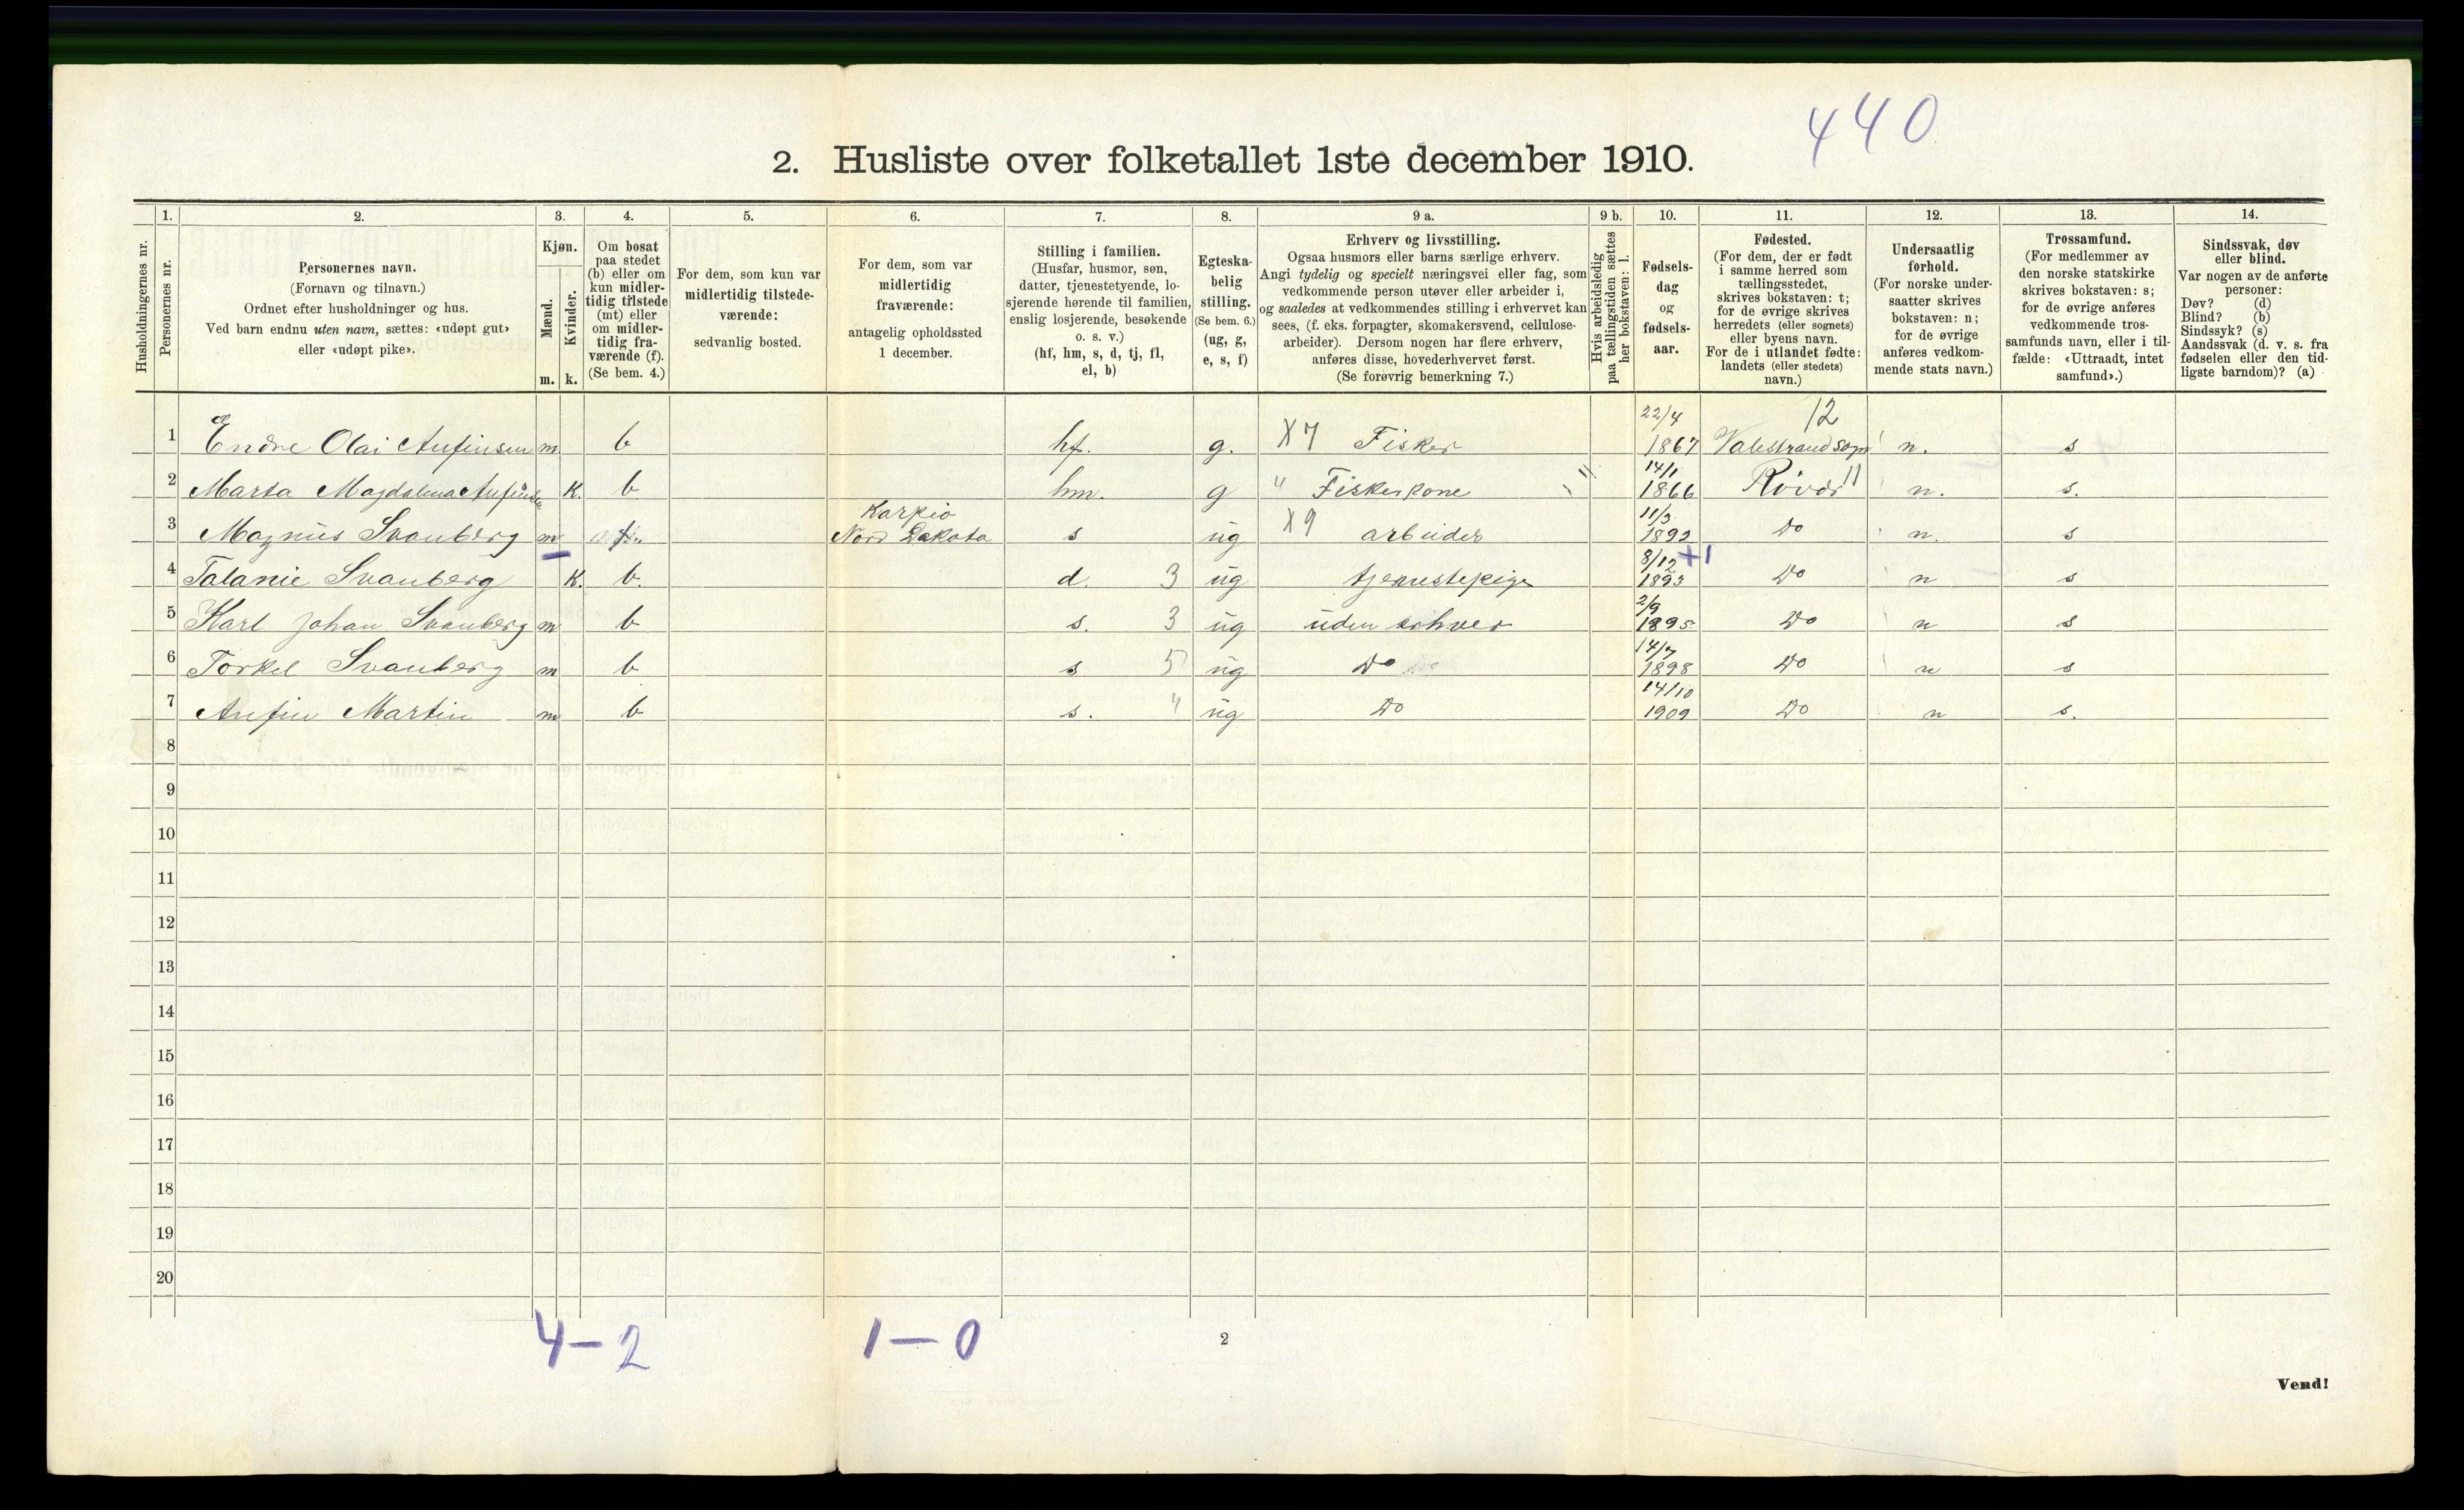 440
2. Husliste over folketallet 1ste december 1910.
Husholdningernes nr.
1.
Personernes nr.
2.
Personernes navn.
(Fornavn og tilnavn.)
Ordnet efter husholdninger og hus.
Ved barn endnu uten navn, sættes: «udøpt gut»
eller «udøpt pike».
3.
Kjøn.
Mænd.
Kvinder.
m. k.
4.
Om bosat
paa stedet
(b) eller om
kun midler-
tidig tilstede
(mt) eller
om midler-
tidig fra-
værende (f).
(Se bem. 4.)
5.
For dem, som kun var
midlertidig tilstede-
værende:
sedvanlig bosted.
6.
For dem, som var
midlertidig
fraværende:
antagelig opholdssted
1 december.
7.
Stilling i familien.
(Husfar, husmor, søn,
datter, tjenestetyende, lo-
sjerende hørende til familien,
enslig losjerende, besøkende
o. s. v.)
(hf, hm, s, d, tj, fl,
el, b)
8.
Egteska-
belig
stilling.
(Se bem. 6.)
(ug, g,
e, s, f)
9 a.
Erhverv og livsstilling.
Ogsaa husmors eller barns særlige erhverv.
Angi tydelig og specielt næringsvei eller fag, som
vedkommende person utøver eller arbeider i,
og saaledes at vedkommendes stilling i erhvervet kan
sees, (f. eks. forpagter, skomakersvend, cellulose-
arbeider). Dersom nogen har flere erhverv,
anføres disse, hovederhvervet først.
(Se forøvrig bemerkning 7.)
9 b.
Hvis arbeidsledig
paa tællingstiden sættes
her bokstaven: l.
10.
Fødsels-
dag
og
fødsels-
aar.
11.
Fødested.
(For dem, der er født
i samme herred som
tællingsstedet,
skrives bokstaven: t;
for de øvrige skrives
herredets (eller sognets)
eller byens navn.
For de i utlandet fødte:
landets (eller stedets)
navn.)
12.
Undersaatlig
forhold.
(For norske under-
saatter skrives
bokstaven: n;
for de øvrige
anføres vedkom-
mende stats navn.)
13.
Trossamfund.
(For medlemmer av
den norske statskirke
skrives bokstaven: s;
for de øvrige anføres
vedkommende tros-
samfunds navn, eller i til-
fælde: «Uttraadt, intet
samfund».)
14.
Sindssvak, døv
eller blind.
Var nogen av de anførte
personer:
Døv? (d)
Blind? (b)
Sindssyk? (s)
Aandssvak (d. v. s. fra
fødselen eller den tid-
ligste barndom)? (a)
22/4 12
1 Endre Olai Anfinsen m b hf. g. X7 Fisker 1867 Valestrand sogn n. s
14/1 11
2 Marta Magdalena Anfinsen K. b hm. g " Fiskerkone 1866 Røvær n. s.
Karpio 11/3
3 Magnus Svanberg m f. Nord Dakota s ug X9 arbeider 1892 Do n. s
8/12 +1
4 Talanie Svanberg K. b. d. 3 ug tjenestepige 1893 Do n s
2/9
5 Karl Johan Svanberg m b s. 3 ug uden erhver 1895 Do n s
14/7
6 Torkel Svanberg m b s 5 ug Do 1898 Do n s
14/10
7 Anfin Martin m b s. " ug Do 1909 Do n s.
8
9
10
11
12
13
14
15
16
17
18
19
20
4-2 1-0
2
Vend!